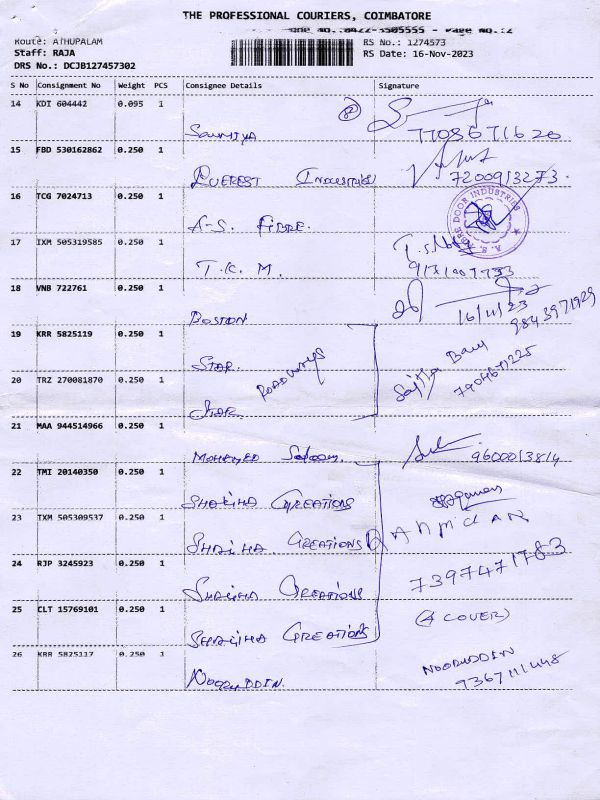 THE PROFESSIONAL COURIERS, COIMBATORE
Route: ATHUPALAM
RS No.: 1274573
Staff: RAJA
RS Date: 16-Nov-2023
DRS No.: DCJB127457302
S No Consignment No Weight PCS Consignee Details Signature
14 KDI 604442 0.095 1
Soumiya 7708671620
15 FBD 530162862 0.250 1
Everest Industries 7200913273.
16 TCG 7024713 0.250 1
A-S. FIBRE.
A. S. FIBRE DOOR INDUSTRIES
17 IXM 505319585 0.250 1
T.K.M.
18 VNB 722761 0.250 1
Boston 16/11/23 9843971929
19 KRR 5825119 0.250 1
Star.
Roadways
20 TRZ 270081870 0.250 1
Star. 7904671225
21 MAA 944514966 0.250 1
Mohemed 9600013814
22 TMI 20140350 0.250 1
Shakiha Creations
23 TXM 505309537 0.250 1
Shakiha. Creations
24 RJP 3245923 0.250 1
Shakiha Creations 7397471783
25 CLT 15769101 0.250 1
Shakiha Creations (4 COVER)
26 KRR 5825117 0.250 1
Nooruddin. NOORUDDIN
9367111448